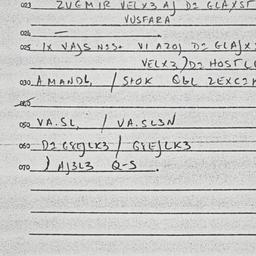 023 ZVGMIR VELX3 AJ D2 GLAXST
VUSFARA
024 —
025 IX VAJS N23+ VI AZOJ D2 GLAJX
VELX3/D2 HOSTL
030 AMANDL, / STOK QBL ZEXC2
050 VA.SL, / VA.SL3N
060 D2 GYEJLK3 / GYEJLK3
070 / AJ3L3 Q-S.